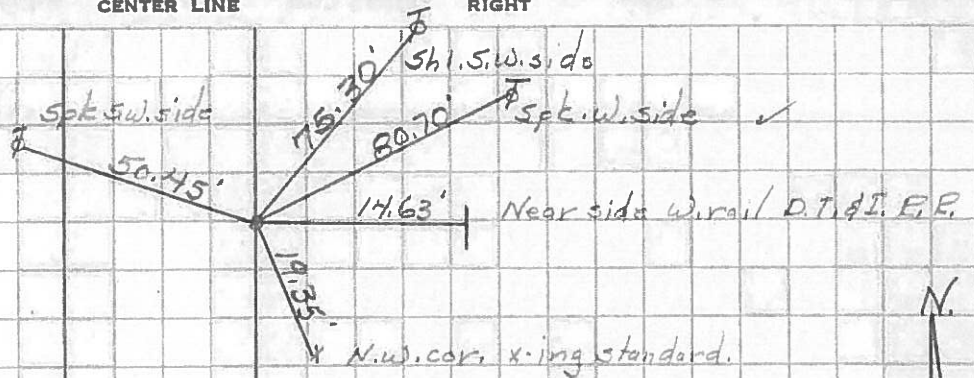 CENTER LINE RIGHT
Shl. S.W. side
Spk S.W. side
75.30'
80.70'
Spk. W. side ✓
50.45'
14.63' Near side W. rail D.T. & I. R.R.
19.35'
N.
N.W. cor. x-ing standard.